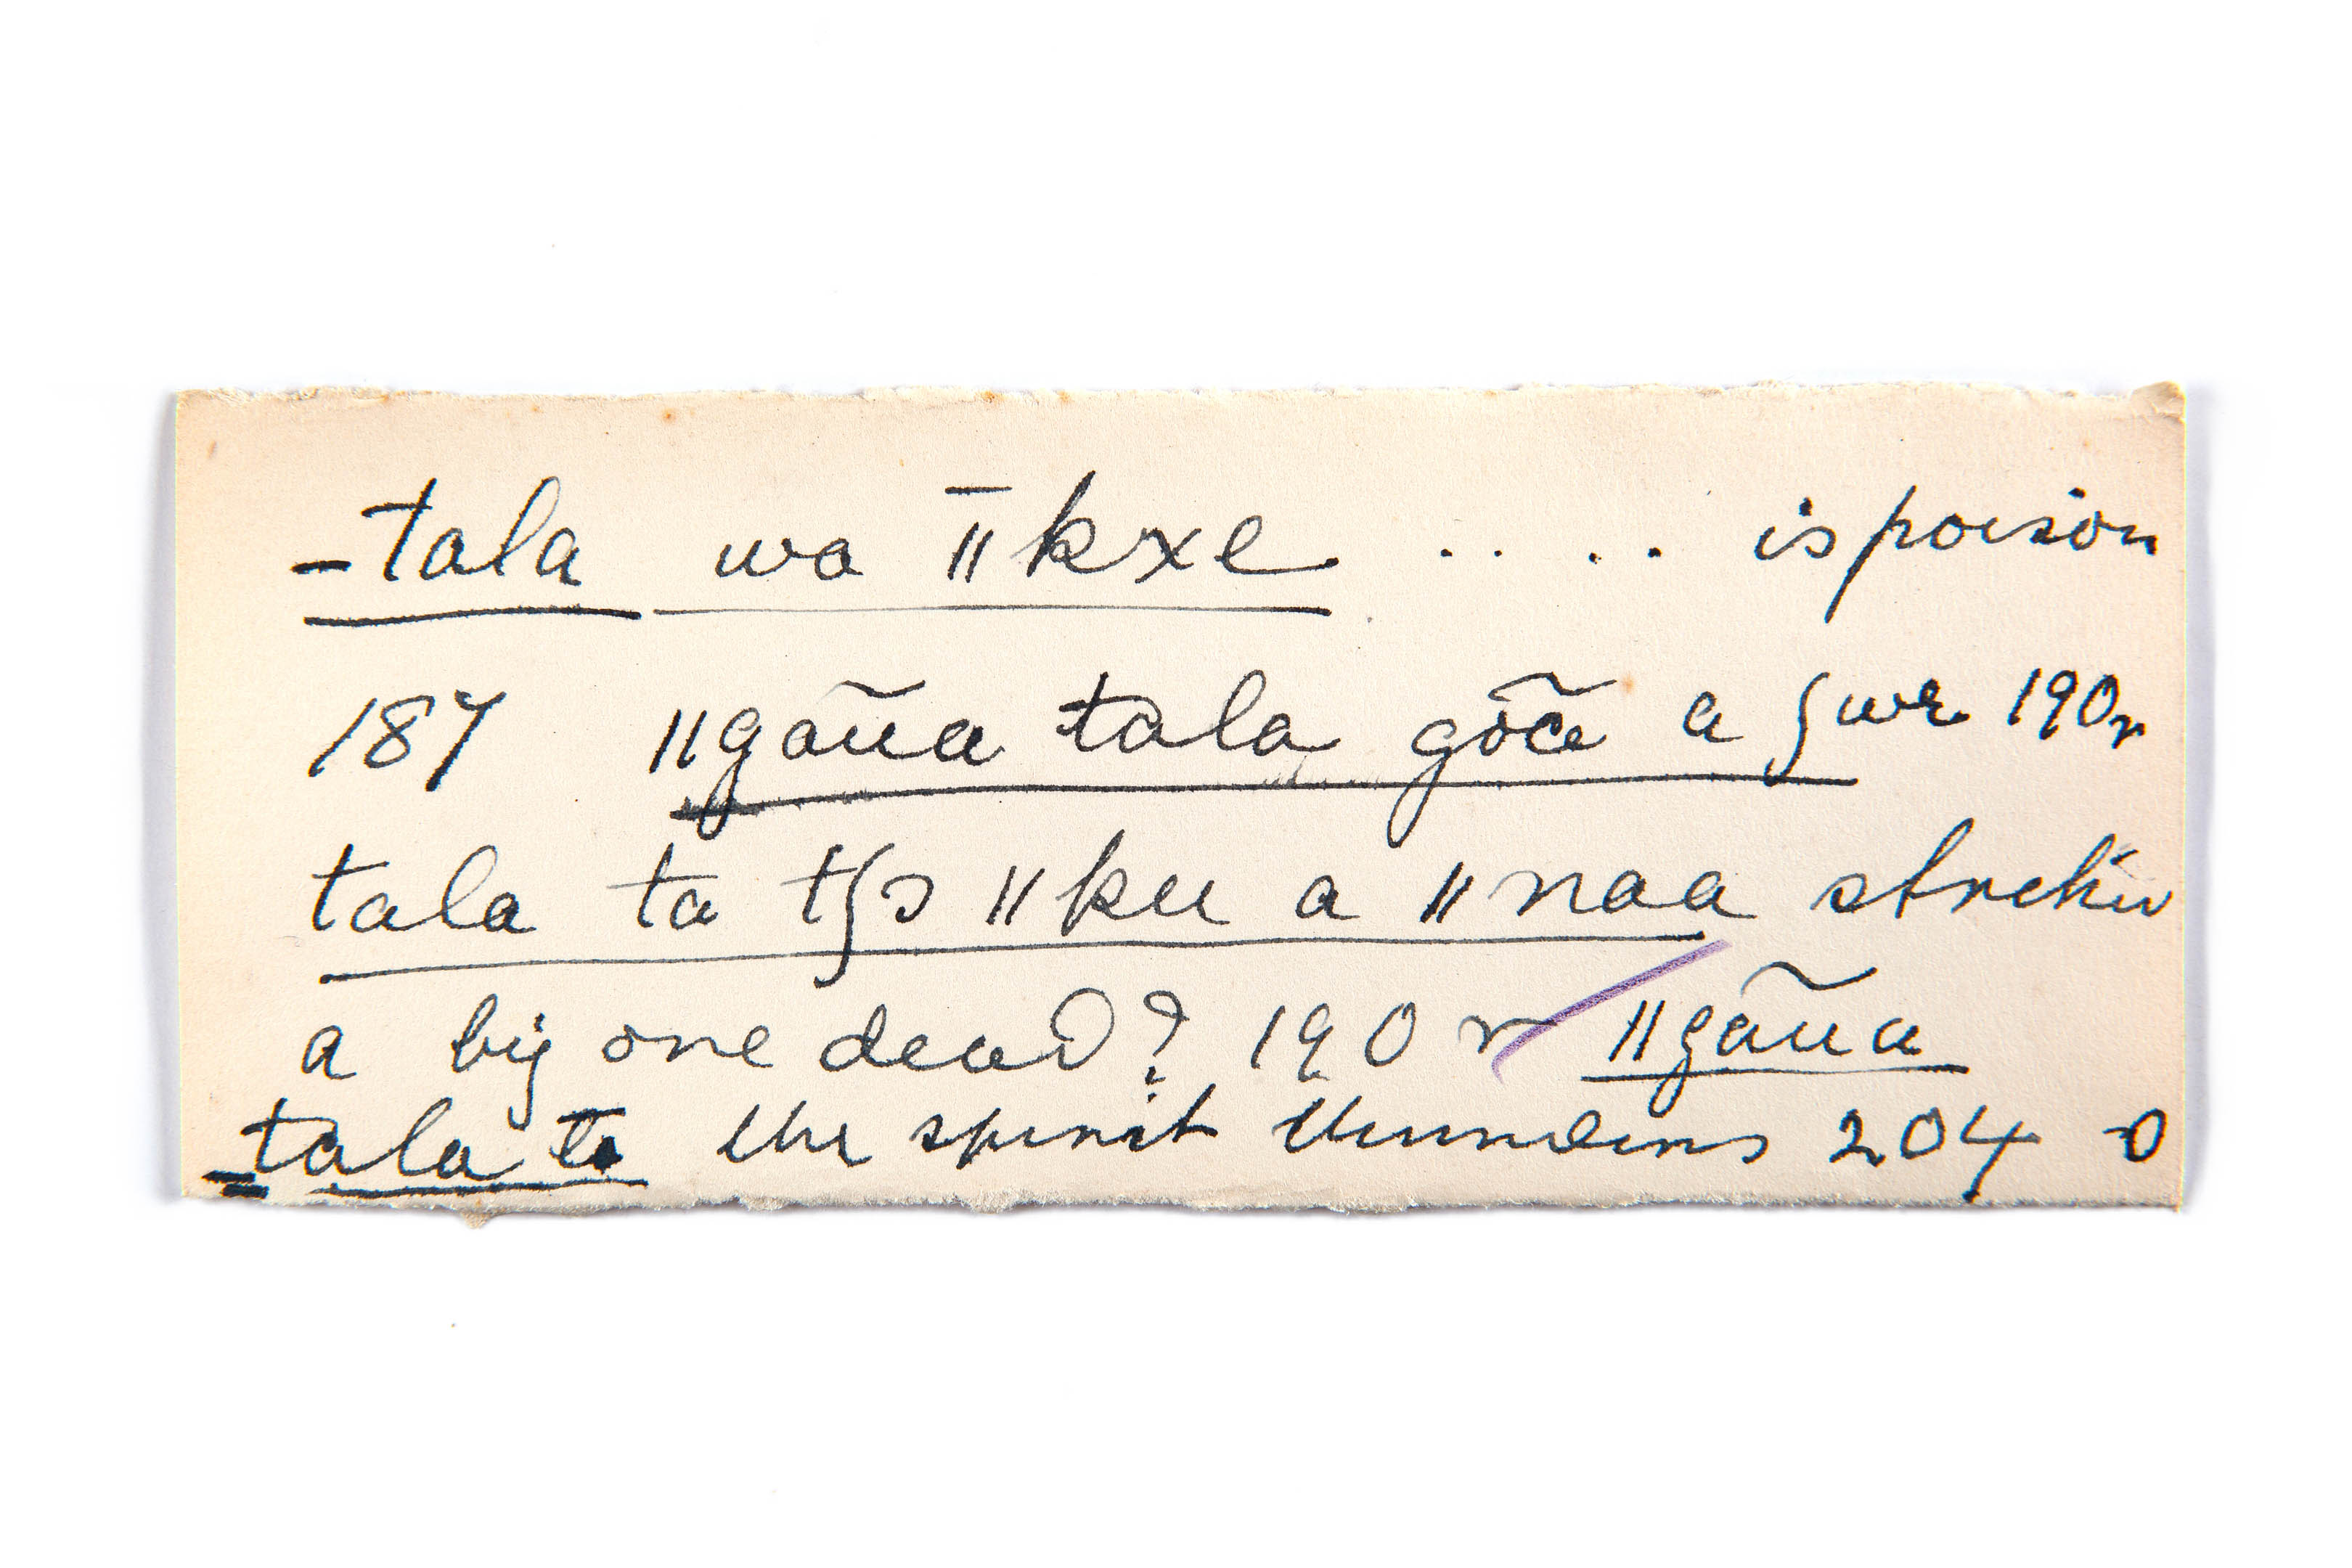 -tala wa ǁ̄kxe .... is poison
187 ǁgãũa tala gõcẽ a ʃwe 190r
tala ta tʃɔ ǁku a ǁnaa
a big one dead? 190 r ǁgãũa
tala ta the spirit thunders 204 0